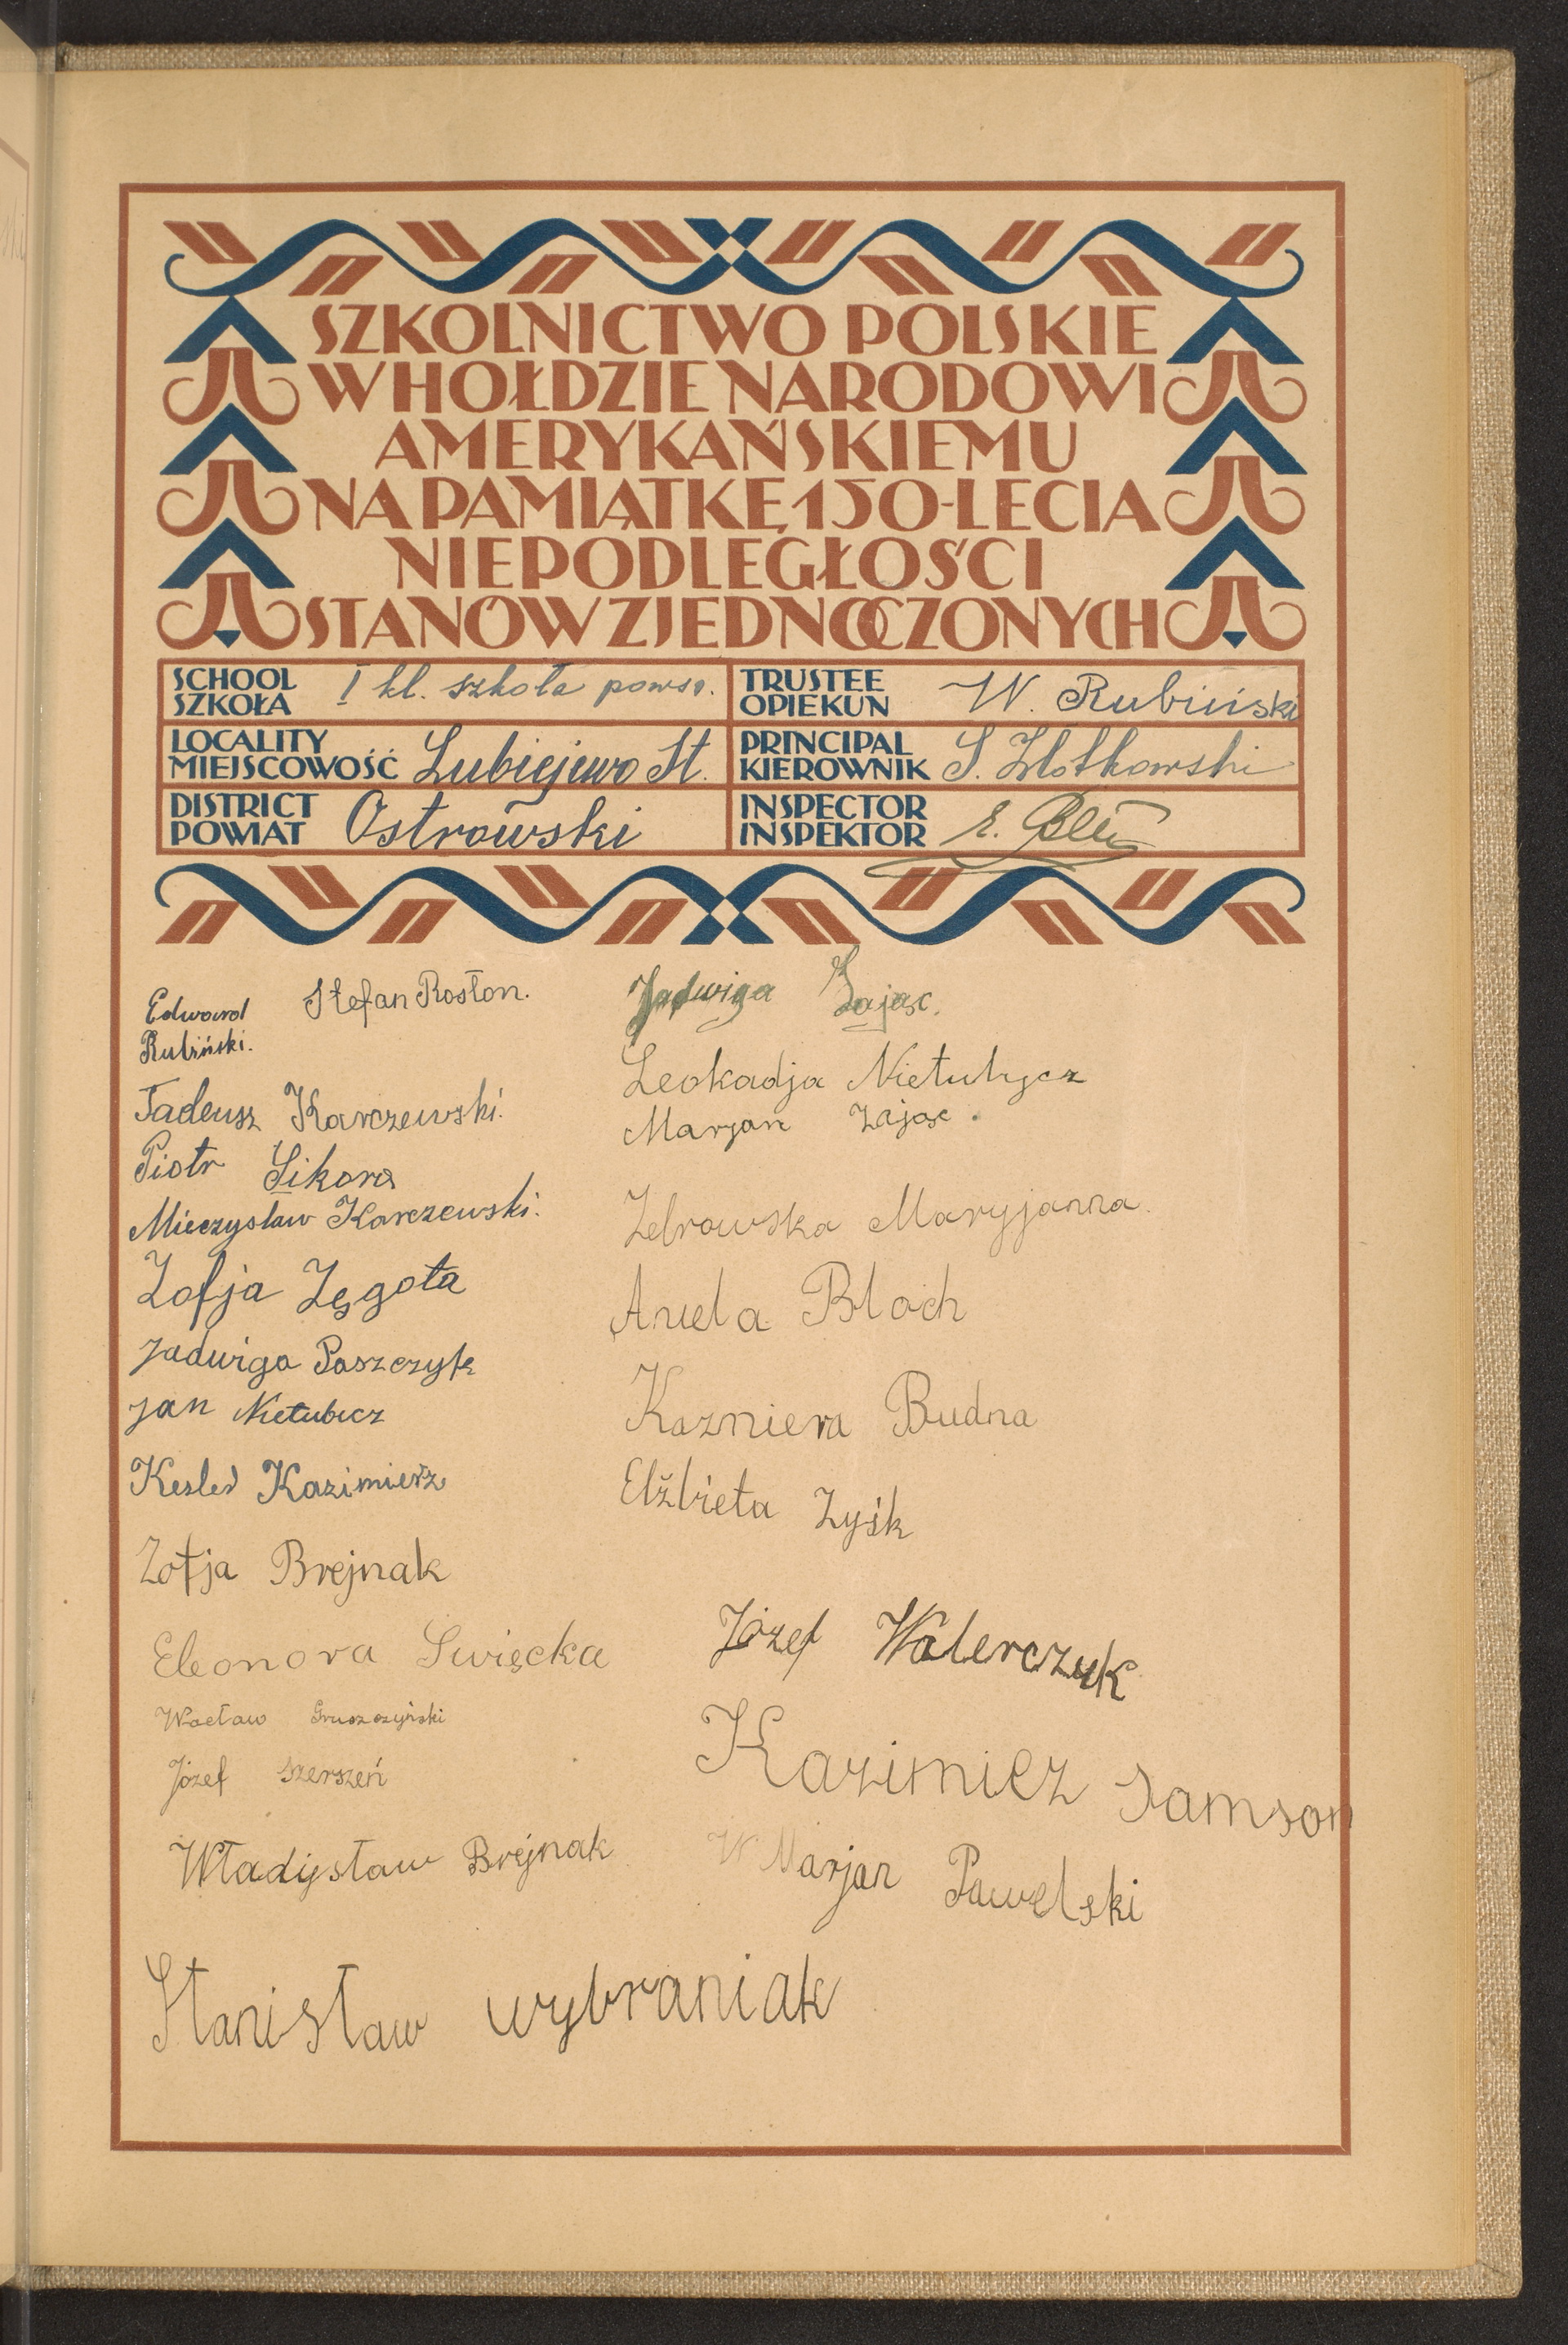 SZKOLNICTWO POLSKIE
W HOŁDZIE NARODOWI
AMERYKAŃSKIEMU
NA PAMIĄTKĘ 150-LECIA
NIEPODLEGŁOŚCI
STANÓW ZJEDNOCZONYCH
SCHOOL
SZKOŁA
I kl. szkoła powsz.
TRUSTEE
OPIEKUN
W. Rubiński
LOCALITY
MIEJSCOWOŚĆ
Lubiejewo St.
PRINCIPAL
KIEROWNIK
S. Złotkowski
DISTRICT
POWIAT
Ostrowski
INSPECTOR
INSPEKTOR
E.
Edward
Rubiński.
Stefan Rosłon.
Tadeusz Karczewski.
Piotr Sikora
Mieczysław Karczewski.
Zofja Zęgota
Jadwiga Paszczyk
Jan Nietubicz
Kesler Kazimierz
Zofja Brejnak
Eleonora Swięcka
Wacław Gruszczyński
Józef Szerszeń
Władysław Brejnak
Stanisław wybraniak
Jadwiga Zając.
Leokadja Nietubycz
Marjan Zając.
Zebrowska Maryjanna.
Anela Bloch
Kazniera Budna
Elżbieta Zyśk
Józef Walerczuk
Kazimiez Samson
W Marjan Pawelski